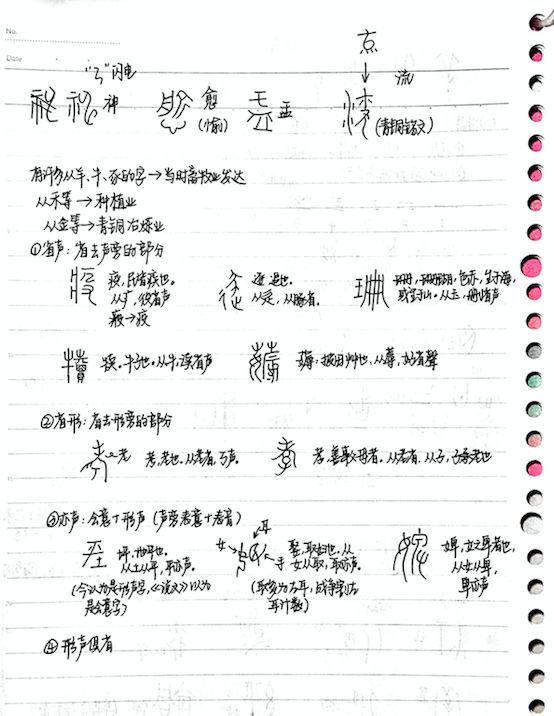 No.
Date
"𠃑"闪电
神
愈
(愉)
盂
流
(青铜铭文)
有许多从羊、牛、豕的字→当时畜牧业发达
从禾等→种植业
从金等→青铜冶炼业
①省声：省去声旁的部分
疫，民皆疾也。
从疒，役省声
逐 追也。
从辵，从豚省。
珊，珊瑚，色赤，生于海，
或生于山。从玉，删省声
犊。牛子也。从牛，渎省声
薅：拔田艸也，从蓐，好省聲
②省形：省去形旁的部分
老
考，老也。从老省，丂声。
孝，善事父母者。从老省，从子，子承老也
③亦声：会意+形声（声旁表意+表音）
坪，地平也。
从土从平，平亦声。
(今认为是形声字，《说文》以为
是会意字)
女→
耳
娶，取妇也。从
女从取，取亦声。
(取多为左耳，战争割左
耳计数)
婢，女之卑者也，
从女从卑，
卑亦声
④形声俱省